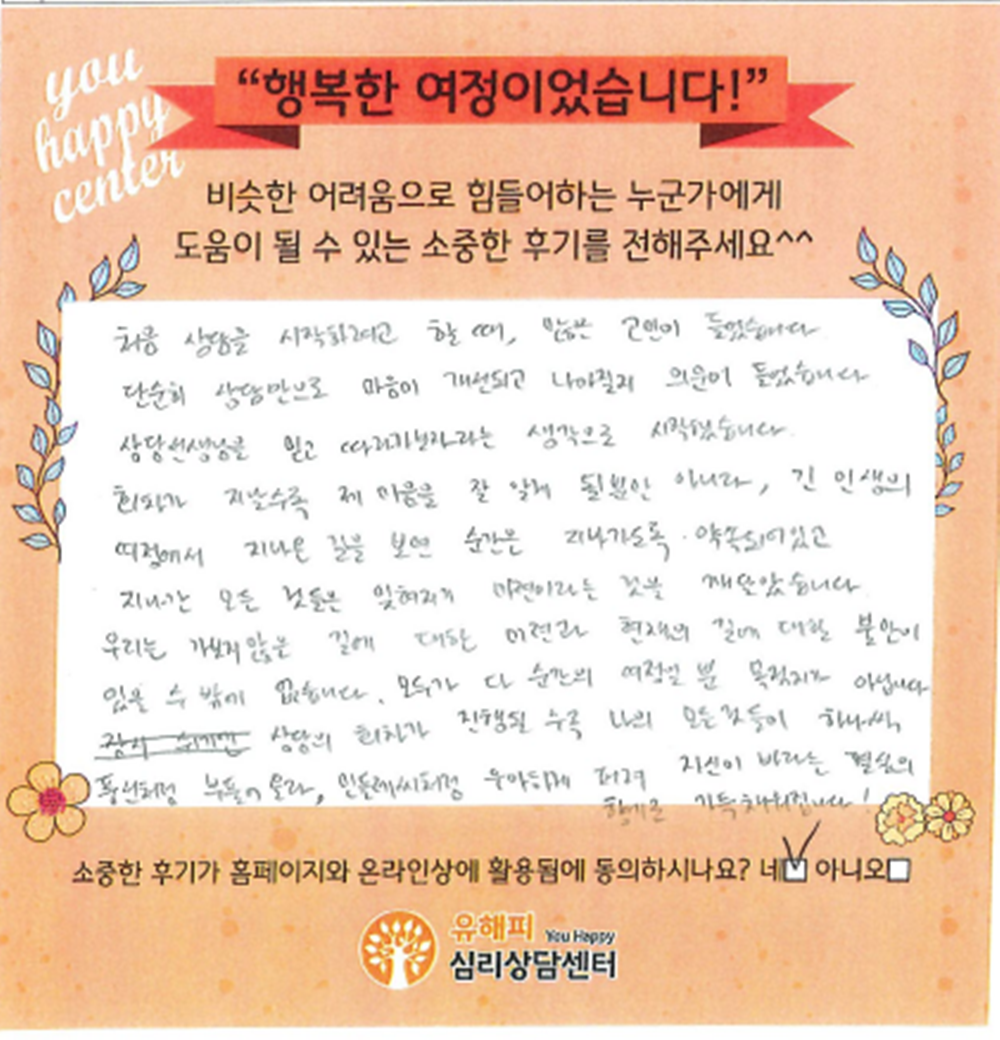 you
happy
center
“행복한 여정이었습니다!”
비슷한 어려움으로 힘들어하는 누군가에게
도움이 될 수 있는 소중한 후기를 전해주세요^^
처음 상담을 시작하려고 할 때, 많은 고민이 들었습니다
단순히 상담만으로 마음이 개선되고 나아질지 의문이 들었습니다
상담선생님을 믿고 따라가보자라는 생각으로 시작했습니다.
회차가 지날수록 제 마음을 잘 알게 될뿐만 아니라, 긴 인생의
여정에서 지나온 길을 보면 순간은 지나가도록 약속되어있고
지나간 모든 것들은 잊혀지기 마련이라는 것을 깨달았습니다
우리는 가보지않은 길에 대한 미련과 현재의 길에 대한 불안이
있을 수 밖에 없습니다. 모두가 다 순간의 여정일 뿐 목적지가 아닙니다
상담의 회차가 진행될 수록 나의 모든것들이 하나씩,
풍선처럼 부풀어 올라, 민들레씨처럼 우아하게 퍼져 자신이 바라는 결실의
가득채워집니다!
소중한 후기가 홈페이지와 온라인상에 활용됨에 동의하시나요? 네 아니오
유해피 You Happy
심리상담센터